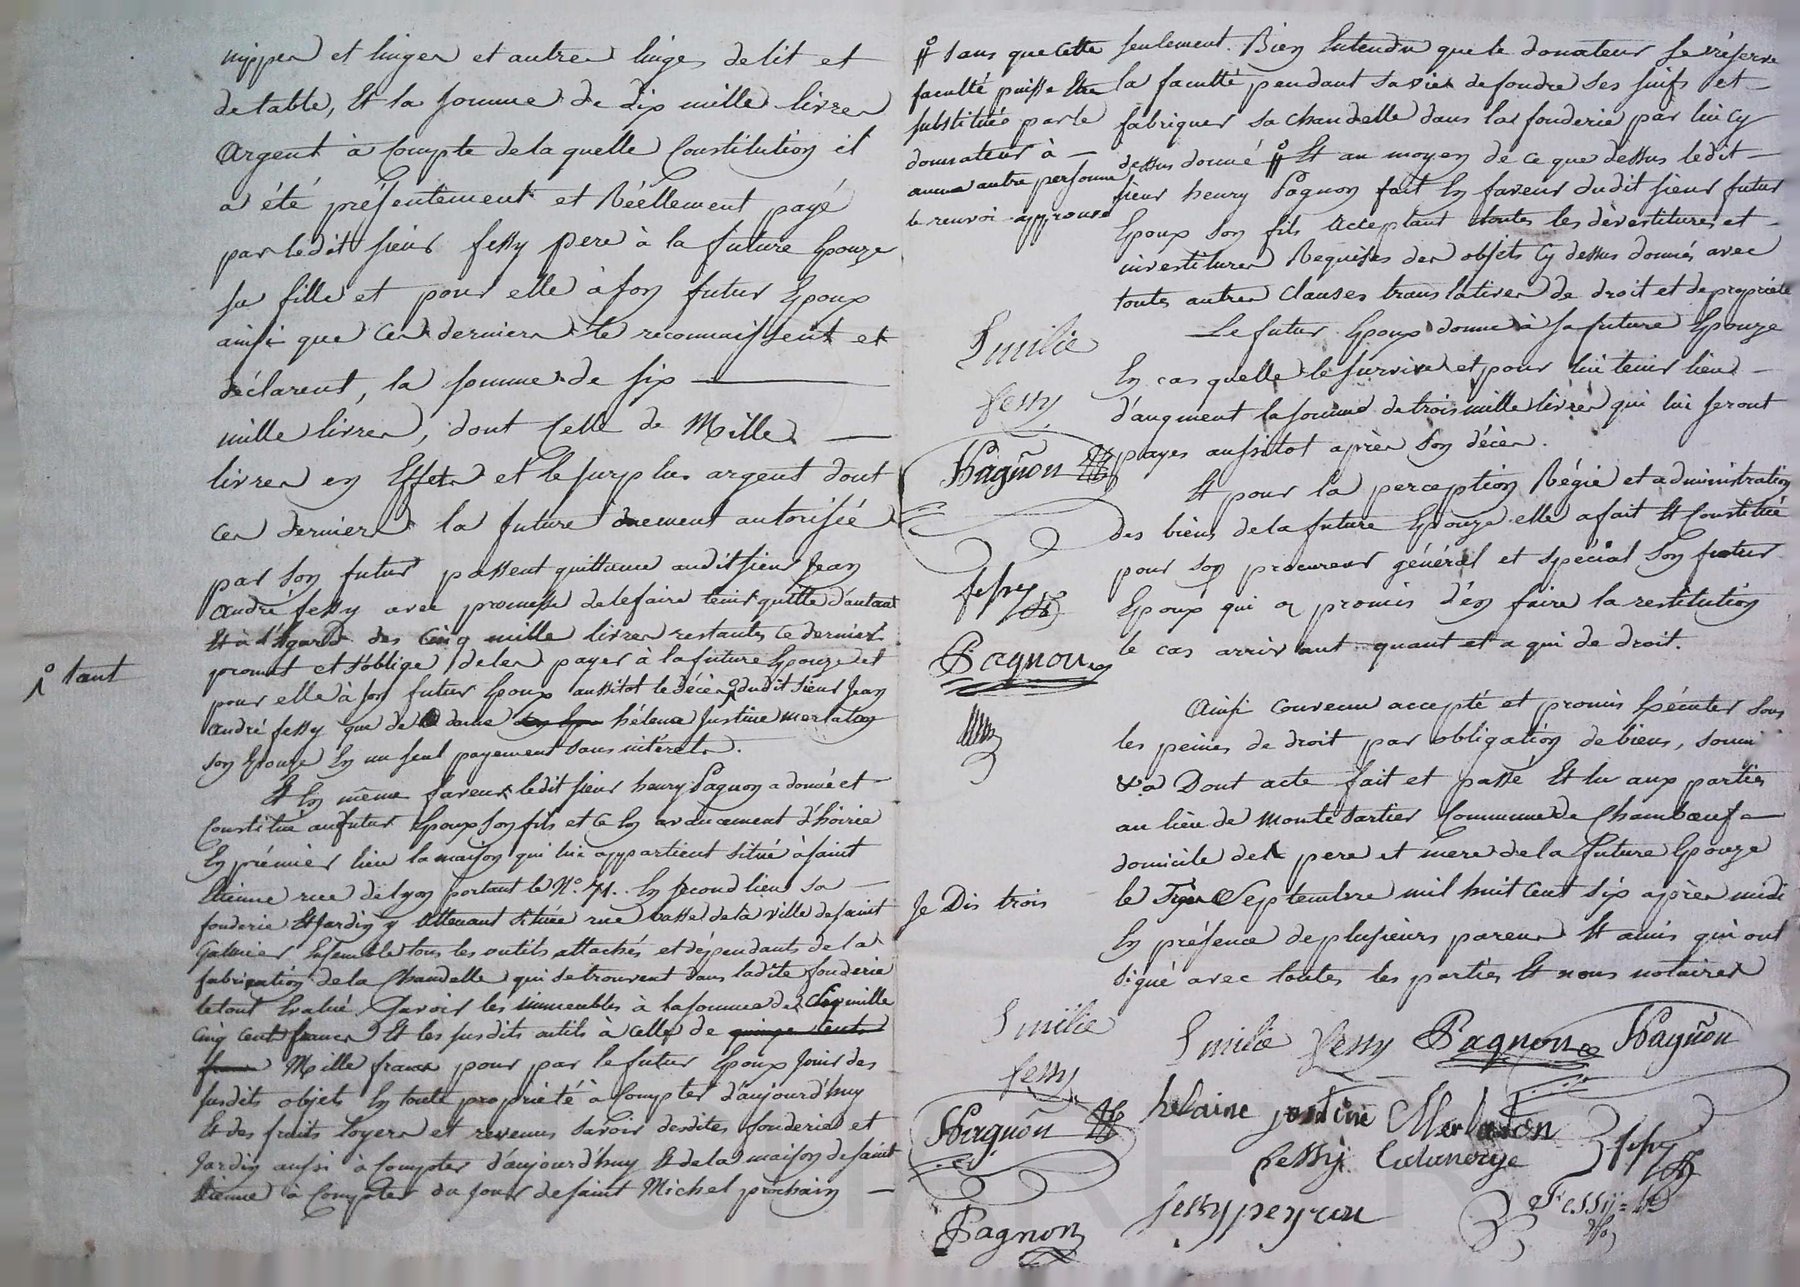 nippes et linges et autres linges de lit et
de table, Et la somme de dix mille livres
Argent à Compte de la quelle Constitution il
a été présentement et Réellement payé
par ledit sieur fessy pere à la future Epouze
sa fille et pour elle à son futur Epoux
ainsi que ces derniers le reconnaissent et
déclarent, la somme de six
mille livres, dont Celle de Mille
livres en Effets et le surplus argent dont
ces derniers la future duement autorisée
par son futur passent quittance audit sieur Jean
André fessy avec promesse de le faire tenir quitte d'autant
Et à l'Egard des Cinq mille livres restants ce dernier
promet et s'oblige de les payer à la future Epouze et
pour elle à son futur Epoux aussitot le décès dudit sieur Jean
André fessy que de dame hélene Justine merlaton
son Epouze En un seul payement sans intérêts.
Et En même faveur ledit sieur henry Pagnon a donné et
Constitué au futur Epoux son fils et ce En avancement d'hoirie
En prémier lieu la maison qui lui appartient située à saint
Etienne rue de lyon portant le N.° 71. En second lieu sa
fonderie Et Jardin y Attenant située rue basse de la ville de saint
Galmier Ensemble tous les outils attachés et dépendants de la
fabrication de la Chandelle qui se trouvent dans ladite fonderie
le tout Evalué Savoir les immeubles à la somme de Six mille
Cinq Cents francs Et les susdits outils à celle de quinze Cents
francs Mille francs pour par le futur Epoux Jouir des
susdits objets En toute propriété à Compter d'aujourd'huy
Et des fruits loyers et revenus savoir desdites fonderie et
Jardin aussi à Compter d'aujourd'huy Et de la maison de saint
Etienne à Compter du Jour de saint Michel prochain
tant
sans que Cette
faculté puisse Etre
substitué par le
donnateur à
aucune autre personne
le renvoi approuvé
Emilie
fessy
Pagnon
fessy
Pagnon
Je Dis trois
Emilie
fessy
Pagnon
Pagnon
seulement. Bien Entendu que le donateur se réserve
la faculté pendant sa vie de fondre ses suifs et
fabriquer sa chandelle dans la fonderie par lui cy
dessus donné Et au moyen de ce que dessus ledit
sieur henry Pagnon fait En faveur dudit sieur futur
Epoux son fils Acceptant toutes les dévestitures et
investitures Requises des objets Cy dessus donnés avec
toutes autres Clauses translatives de droit et de propriété
Le futur Epoux donne à sa future Epouze
En cas quelle le survive et pour lui tenir lieu
d'augment la somme de trois mille livres qui lui seront
payes aussitot après son décès.
Et pour la perception Régie et administration
des biens de la future Epouze elle a fait Et Constitué
pour son procureur général et spécial son futur
Epoux qui a promis d'en faire la restitution
le cas arrivant quant et a qui de droit.
Ainsi Convenu accepté et promis Exécuter sous
les peines de droit par obligation de biens, soumi
&.a Dont acte fait et passé Et lu aux parties
au lieu de Montesartier Commune de Chambœuf
domicile des pere et mere de la future Epouze
le Septembre mil huit Cent six après midi
En présence de plusieurs parens Et amis qui ont
signé avec toutes les parties Et nous notaires
Emilie fessy Pagnon Pagnon
helaine justine Merlaton
fessy Calanorye fessy
fessy peyron Fessy